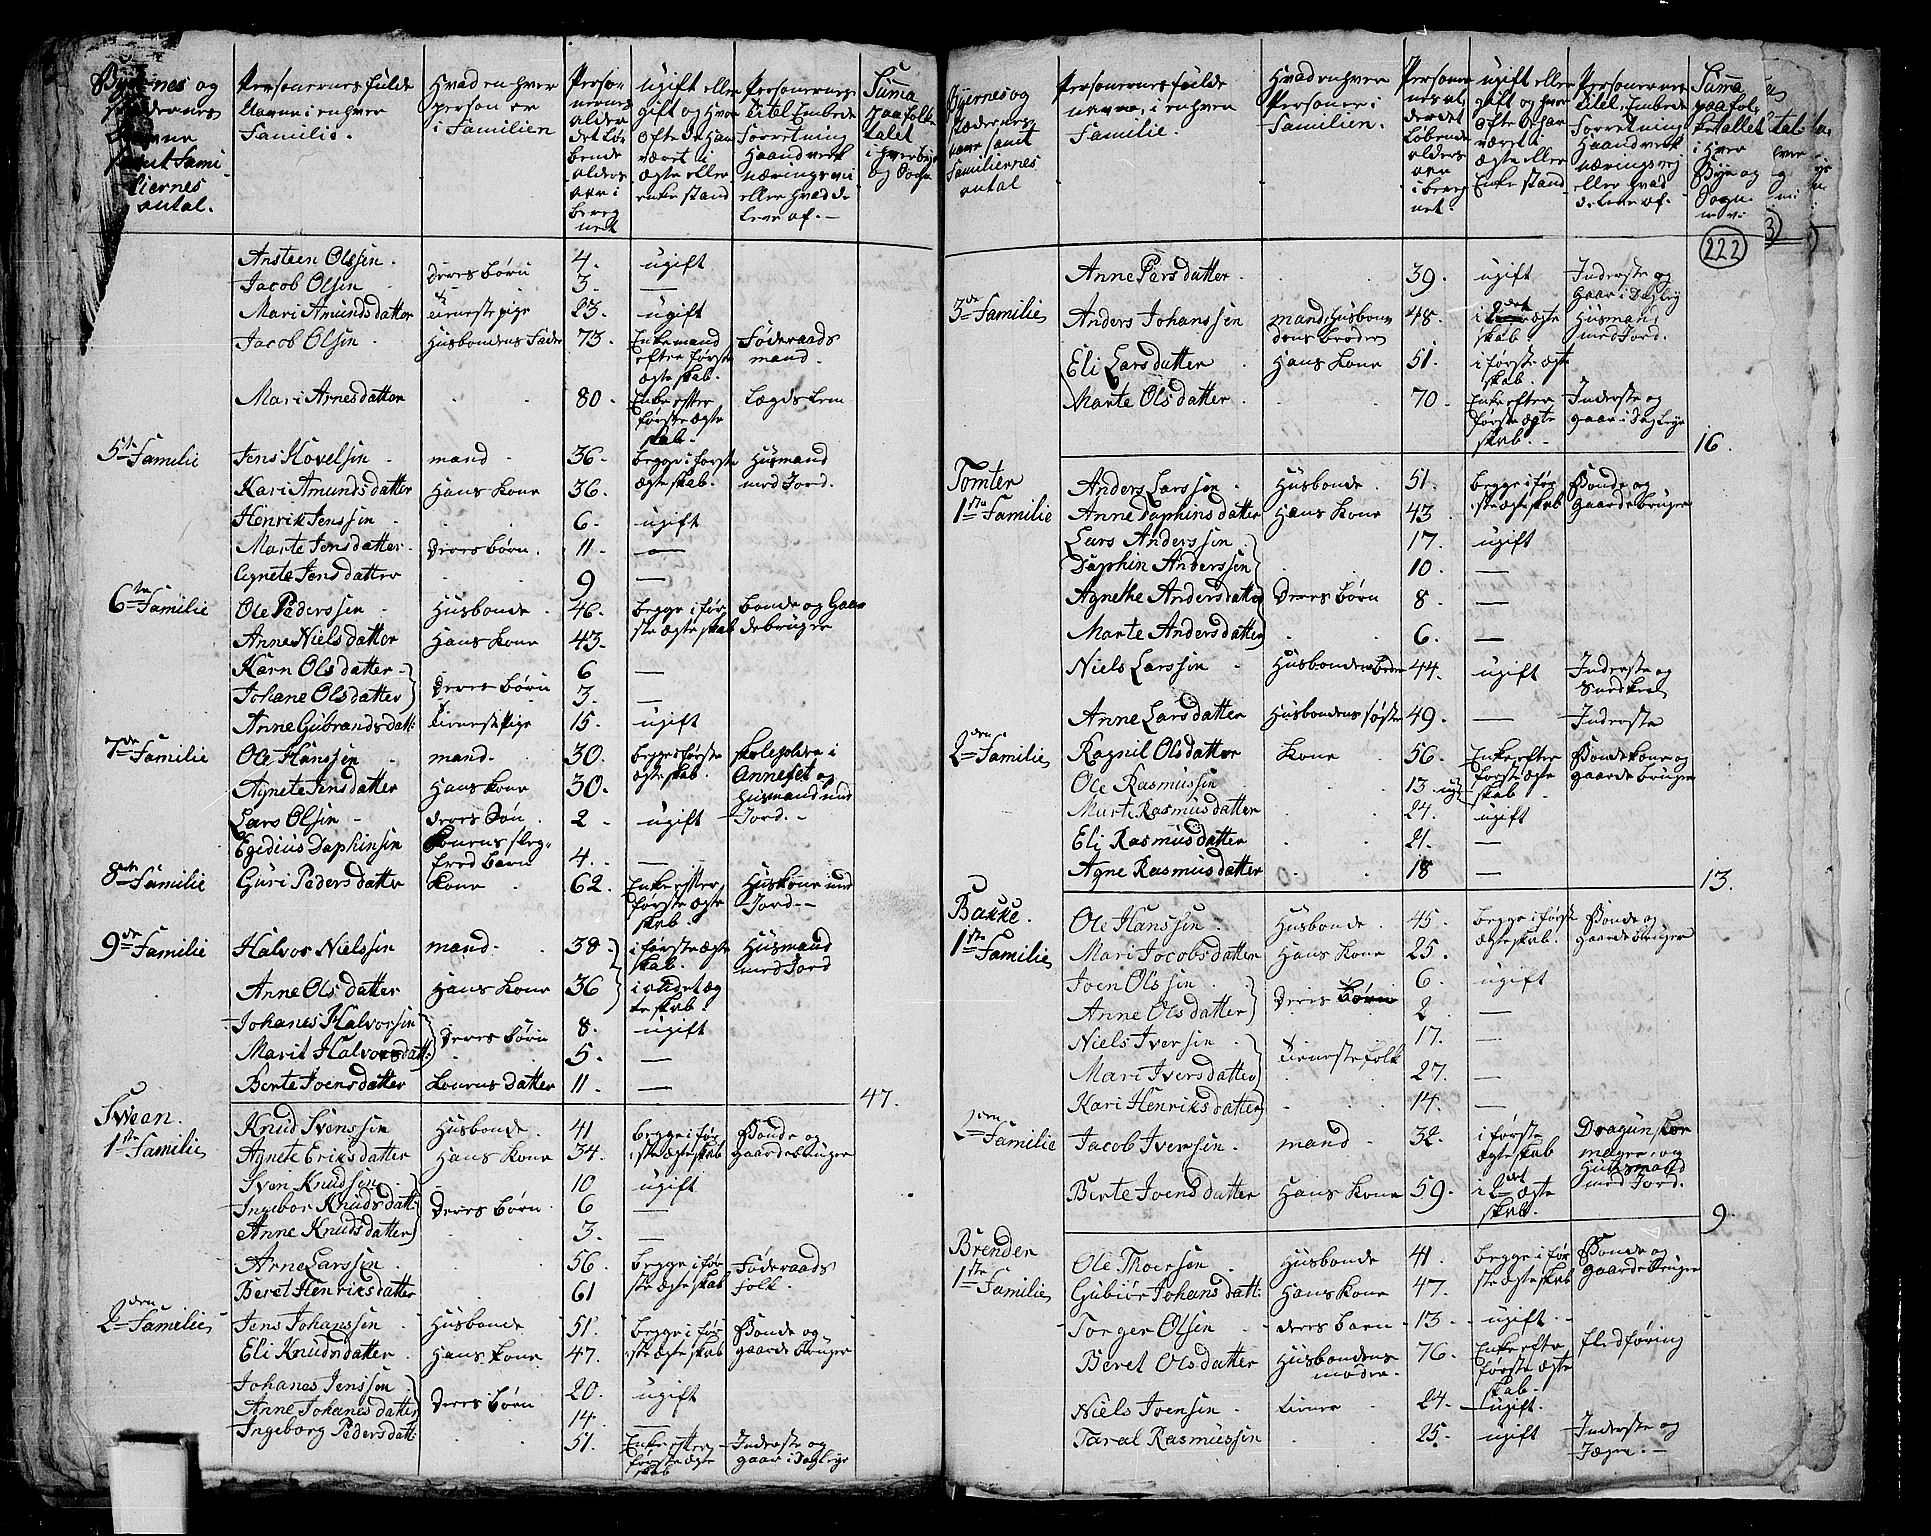 Byernes og Gaardernes Navne samt Familiernes antal.
Personernes fulde Navne i enhver Familie.
Hvad en hver person er i Familien
Personernes alder det løbende alders aar i beregnet
ugift eller gift og hvor ofte de har været i ægte eller enke stand
Personernes Titel Embede Forretning Haandverk Næringsvei eller hvad de leve af.
Summa paa folke talet i hver bye og Sogn
Ansteen Olssen 4. ugift
Jacob Olsen Deres børn 3. —
Mari Amundsdatter tieneste pige 23. ugift
Jacob Olsen Husbondens Fader 73. Enkemand efter første ægteskab. Føderaads mand.
Mari Arnesdatter 80. Enke efter første ægte skab. Lægds Lem
5te Familie Jens Hovelsen mand 36. begge i første ægteskab. Husmand med Jord.
Kari Amundsdatter Hans Kone 36.
Henrik Jenssen 6. ugift
Marte Jensdatter Deres børn. 11. —
Agnete Jensdatter 9 —
6te Familie Ole Pederssen Husbonde 46. begge i første ægteskab bonde og Gaardebruger
Anne Nielsdatter Hans Kone 43.
Karn Olsdatter 6 —
Johane Olsdatter Deres børn 3. —
Anne Gubrandsdatt: tieneste Pige 15. ugift
7de Familie Ole Hanssen mand. 30. begge i første ægteskab. skoleholder i Annefet og Husmand med Jord.
Agnete Jensdatter Hans Kone 30.
Lars Olsen deres Søn 2 ugift
Egidius Daphinsen Konens slegfred barn 4. —
8de Familie Guri Pedersdatter Kone 62. Enke efter første ægteskab. Huskone med Jord.
9de Familie Halvor Nielssen mand. 38. i første ægteskab. Husmand med Jord
Anne Olsdatter Hans Kone 36 i andet ægteskab.
Johanes Halvorsen Deres børn 8. ugift
Marit Halvorsdatt: 5. —
Berte Joensdatter Konens datter 11. — 47.
Sveen.
1ste Familie Knud Svenssen Husbonde. 41 begge i første ægteskab Bonde og gaardebruger
Agnete Eriksdatter Hans Kone 34.
Sven Knudsen 10 ugift
Ingebor Knudsdatt: Deres børn 6 —
Anne Knudsdatter 3. —
Arne Larssen 56. begge i første ægteskab Føderaads folk.
Beret Henriksdatter 61
2den Familie Jens Johanssen Husbonde 51. begge i første ægteskab Bonde og gaarde bruger
Eli Knudsdatter Hans Kone 47.
Johanes Jenssen 20. ugift
Anne Johanesdatter Deres børn 14. —
Ingeborg Pedersdatt: 51. Enke efter første ægteskab Inderste og gaar i Dagleye
Byernes og Gaardernes navne samt Familiernes antal
Personernes fulde navne, i enhver Familie.
Hvad enhver Personer i Familien.
Personernes al, der det løbende alders aar i beregnet.
ugift eller gift og hvor ofte de har været i ægte eller Enke stand
Personernes titel, Embede Forretning Haandverk næringsvej eller hvad de leve af.
Summa paa folketallet i hver Bye og Sogn
222
Anne Persdatter 39. ugift Inderste og Gaar i Dagleye
3de Familie Anders Johanssen mand, Husbondens broder 48. i 2det ægteskab Husmand med Jord.
Eli Larsdatter Hans Kone 51. i første ægteskab.
Marte Olsdatter 70. Enke efter første ægteskab. Inderste og gaar i Dagleye
16.
Tomter
1ste Familie Anders Larssen Husbonde 51. begge i første ægteskab Bonde og Gaardebruger
Anne Daphinsdatter Hans Kone 43
Lars Anderssen 17. ugift
Daphin Anderssen 10. —
Agnethe Andersdatter Deres børn 8. —
Marte Andersdatter 6. —
Niels Larssen Husbondens broder 44. ugift Inderste og Snedker
Anne Larsdatter Husbondens søster 49. — Inderste
2den Familie Ragnil Olsdatter Kone 56. Enke efter første ægteskab Bondekone og gaardebruger
Ole Rasmussen 13 ugi
Marte Rasmusdatter 24. ugift
Eli Rasmusdatter 21. —
Agne Rasmusdatter 18 — 13.
Bakke.
1ste Familie Ole Hanssen Husbonde 45. begge i første ægteskab. Bonde og gaardebruger
Mari Jacobsdatter Hans Kone 25.
Joen Olssen 6. ugift
Anne Olsdatter Deres børn 2 —
Niels Iversen 17. —
Mari Iversdatter tienestefolk 27. —
Kari Henriksdatter 14. —
2den Familie Jacob Iversen mand 32. i første ægteskab Dragun og Husmand med Jord.
Berte Joensdatter Hans Kone 59. i 2det ægteskab. 9.
Brenden
1ste Familie Ole Thoersen Husbonde 41 begge i første ægteskab Bonde og gaardebruger
Gubiør Johansdatt: Hans Kone 47.
Torger Olsen deres barn 13 ugift.
Beret Olsdatter Husbondens moder. 76. Enke efter første ægteskab. fledføring
Niels Joensen tiener 24. ugift.
Taral Rasmussen 25. ugift Inderste og Jæger.